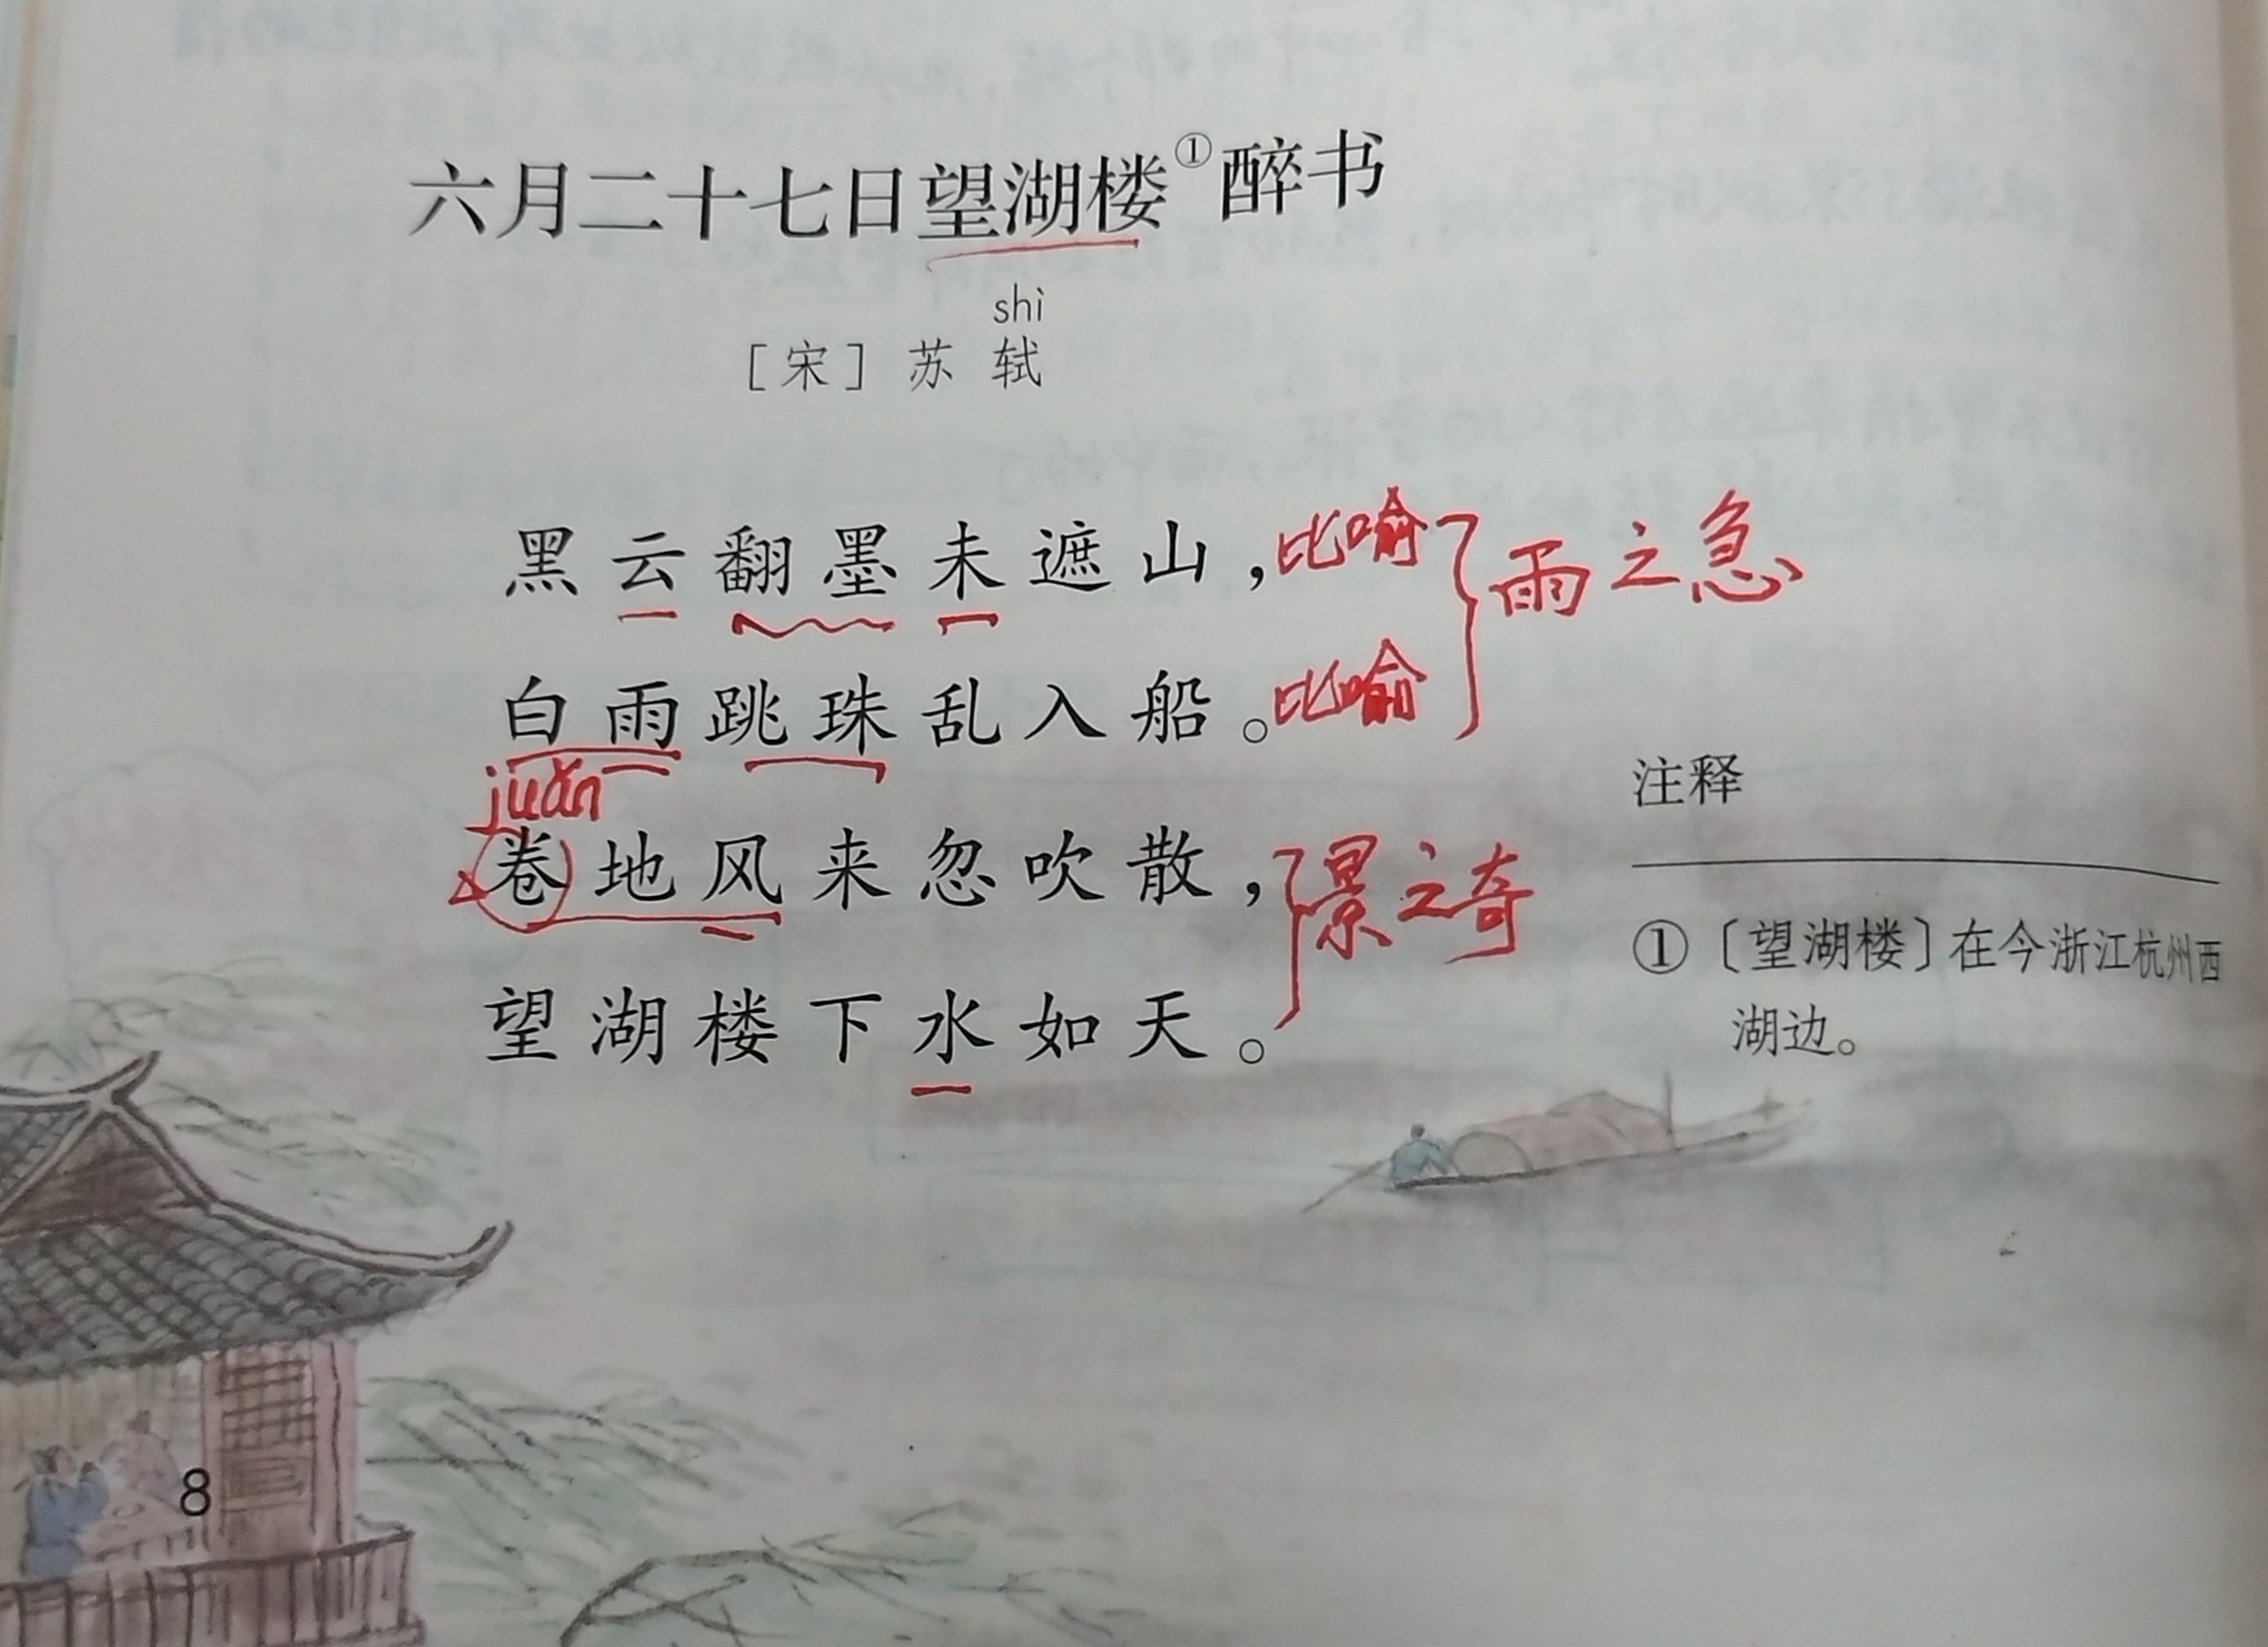 六月二十七日望湖楼①醉书
shì
［宋］苏 轼
黑云翻墨未遮山，比喻
雨之急
白雨跳珠乱入船。比喻
juǎn
卷地风来忽吹散，景之奇
望湖楼下水如天。
注释
①〔望湖楼〕在今浙江杭州西
湖边。
8